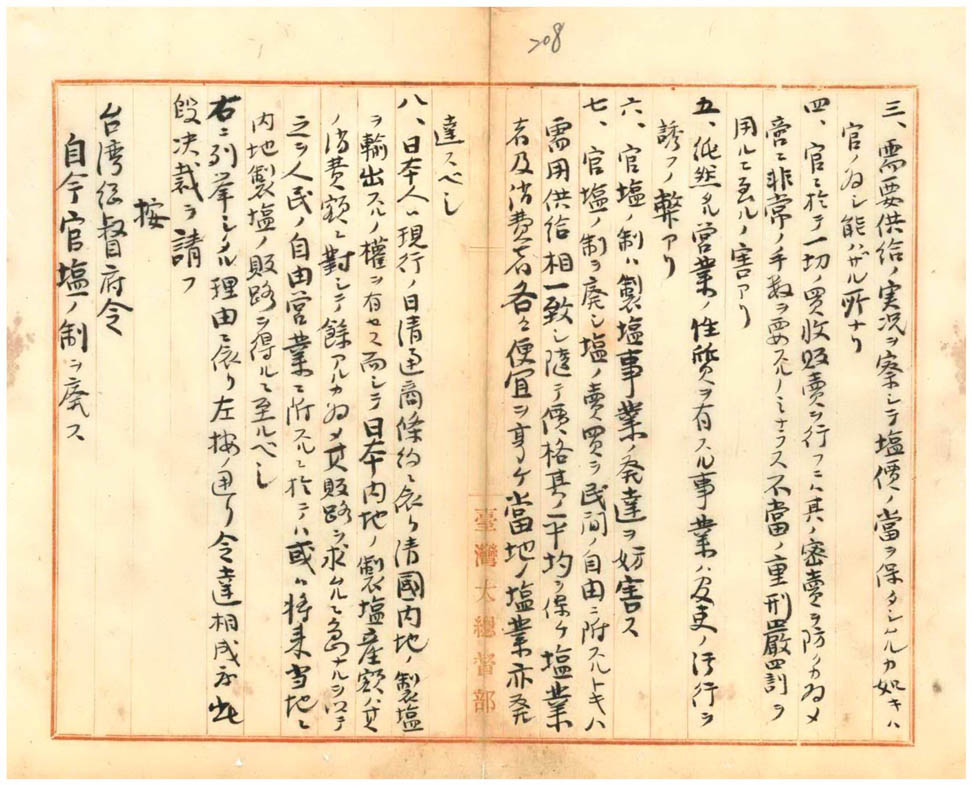 208
三、需要供給ノ実況ヲ察シテ塩價ノ當ヲ保タシムルカ如キハ
官ノ為シ能ハザル所ナリ
四、官ニ於テ一切ノ買收販賣ヲ行フニハ其ノ密賣ヲ防クカ為メ
啻ニ非常ノ手数ヲ要スルノミナラス不當ノ重刑嚴罰ヲ
用ルニ至ルノ害アリ
五、純然タル営業ノ性質ヲ有スル事業ハ吏ノ汚行ヲ
誘フノ弊アリ
六、官塩ノ制ハ製塩事業ノ発達ヲ妨害ス
七、官塩ノ制ヲ廃シ塩ノ賣買ヲ民間ノ自由ニ附スルトキハ
需用供給相一致シ随テ價格其ノ平均ヲ保ケ塩業
者及消費者各々便宜ヲ享ケ當地ノ塩業亦発
達スベシ
八、日本人ハ現行ノ日清通商條約ニ依リ清國内地ノ製塩
ヲ輸出スルノ權ヲ有セス而シテ日本内地ノ製塩産額ハ其
ノ消費額ニ對シテ餘アルカ為メ其販路ヲ求ムルニ急ナルヲ以テ
之ヲ人民ノ自由営業ニ附スルニ於テハ或ハ将来当地ニ
内地製塩ノ販路ヲ得ルニ至ルベシ
右ニ列挙シタル理由ニ依リ左按ノ通リ令達相成度此
段決裁ヲ請フ
按
台湾総督府令
自今官塩ノ制ヲ廃ス
臺灣大總督部